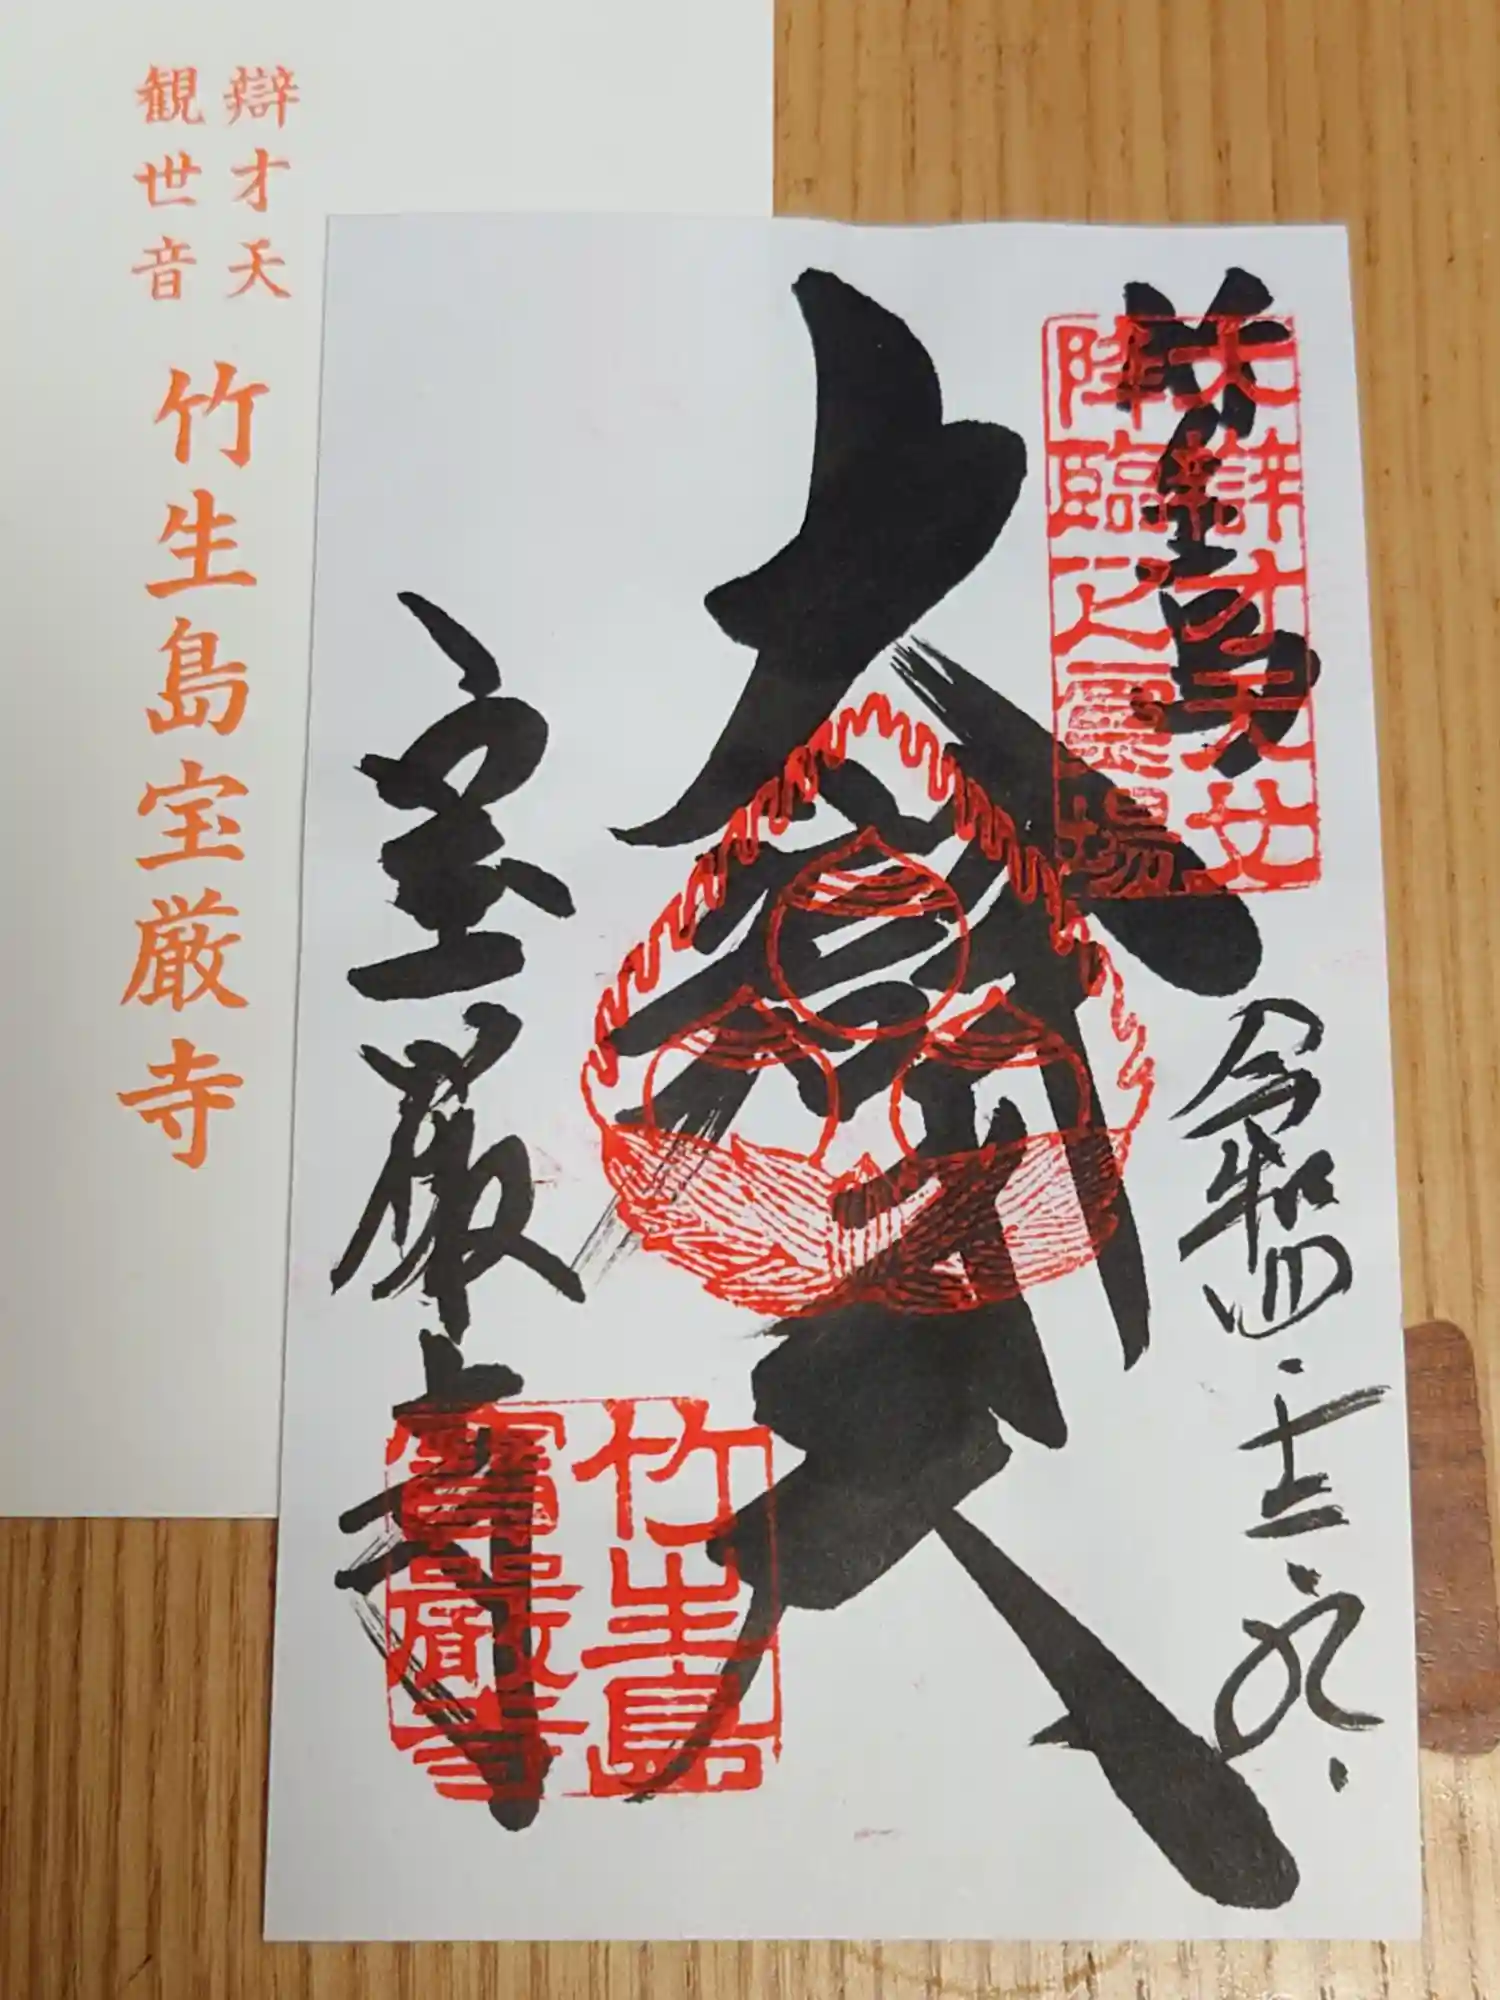 辯才天
観世音
竹生島宝厳寺
竹生島
大辯才天女
降臨之霊場
令和四・十二・九・
大辯才天
宝厳寺
竹生島
寶嚴寺